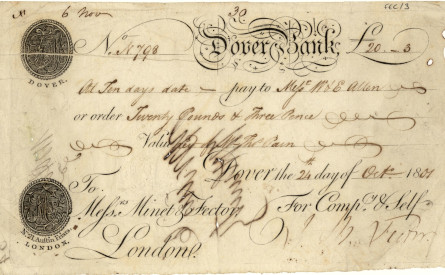 6 Nov 30 CCC/3
No. K 798 Dover Bank, £20..-..3
DOVER.
At Ten days date pay to Messrs. W & E Allen
or order Twenty Pounds & Three Pence
Value
Dover the 24th day of Octr. 1801
To
Messrs. Minet & Fector For Compy. & Self
London.
No. 21, Austin Friars
LONDON.